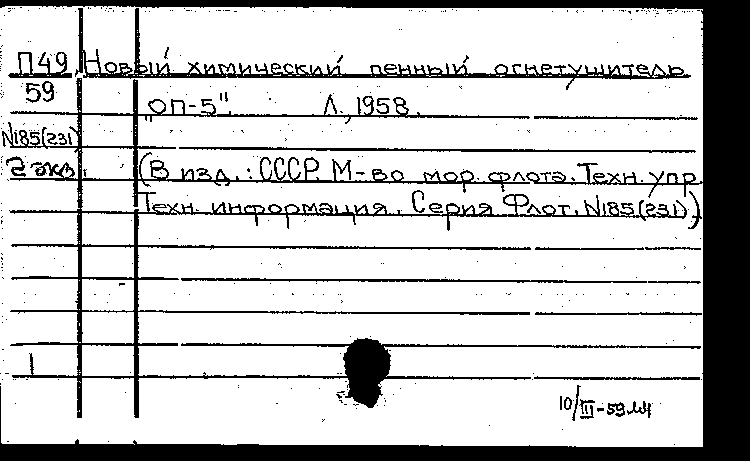 П49 Новый химический пенный огнетушитель
59 „ОП-5". Л., 1958.
N185(231)
2 экз. (В изд.: СССР. М-во мор. флота. Техн. упр.
Техн. информация. Серия Флот. N185(231))
1
10/III-59